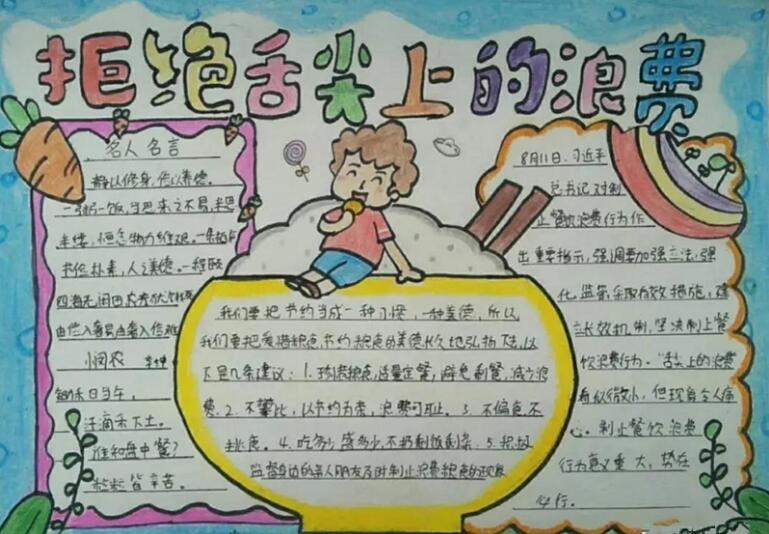 拒绝舌尖上的浪费
名人名言
静以修身，俭以养德。
一粥一饭，当思来之不易，半思
半缕，恒念物力维艰。
朱伯儒
俭朴素，人之美德。
四海无闲田 农夫犹饿死
由俭入奢易由奢入俭难
悯农 李绅
锄禾日当午，
汗滴禾下土。
谁知盘中餐？
粒粒皆辛苦。
我们要把节约当成一种习惯，一种美德，所以
我们要把爱惜粮食节约粮食的美德长久地弘扬下去，以
下是几条建议：1.珍惜粮食，适量定餐，避免剩餐，减少浪
费。2.不攀比，以节约为荣，浪费可耻。3.不偏食，不
挑食。4.吃多少盛多少，不扔剩饭剩菜。5.积极
监督身边的亲人朋友及时制止浪费粮食的现象
8月11日，习近平
总书记对制
止餐饮浪费行为作
出重要指示，强调要加强立法，强
化监管，采取有效措施，建
立长效机制，坚决制止餐
饮浪费行为。“舌尖上的浪费
看似微小，但现象令人痛
心。制止餐饮浪费
行为意义重大，势在
必行。